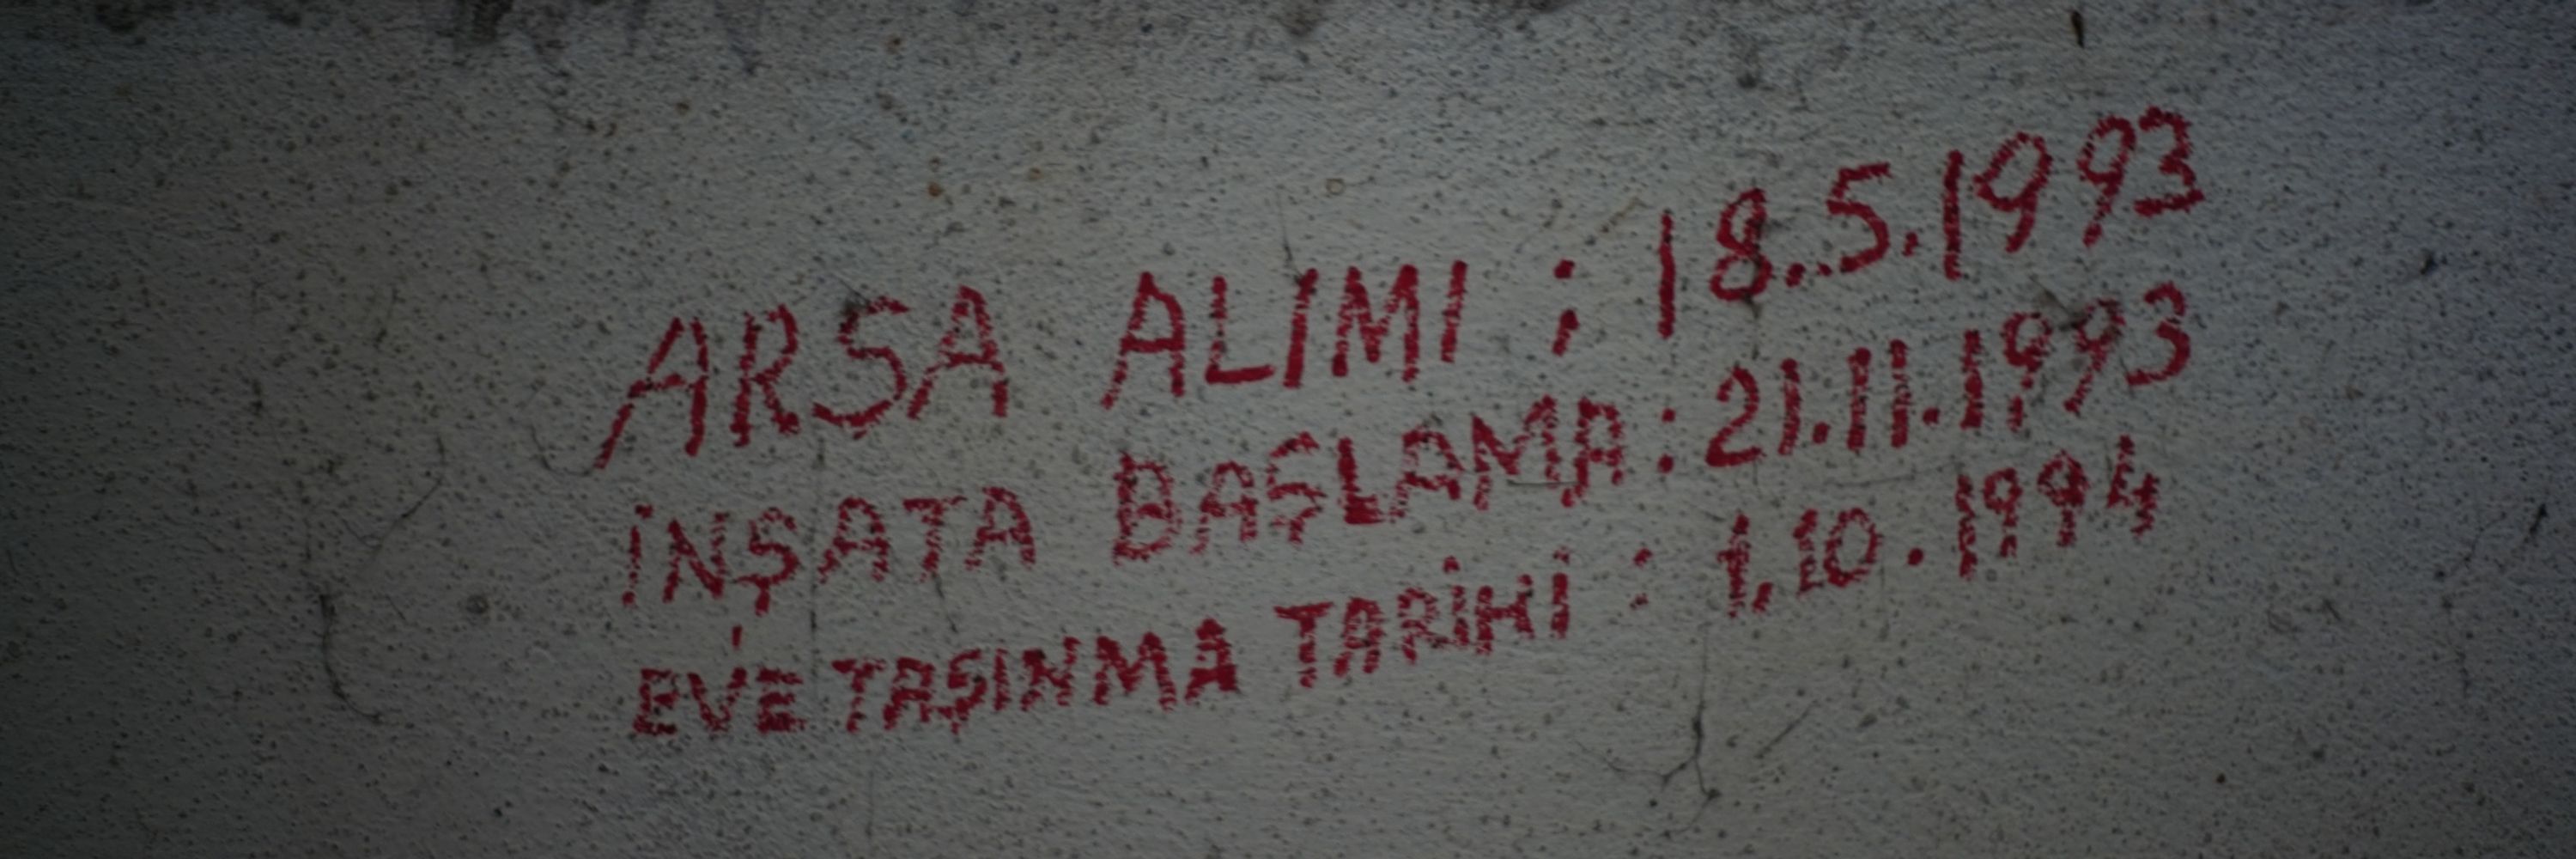 ARSA ALIMI : 18.5.1993
İNŞATA BASLAMA : 21.11.1993
EVE TAŞINMA TARİHİ : 1.10.1994